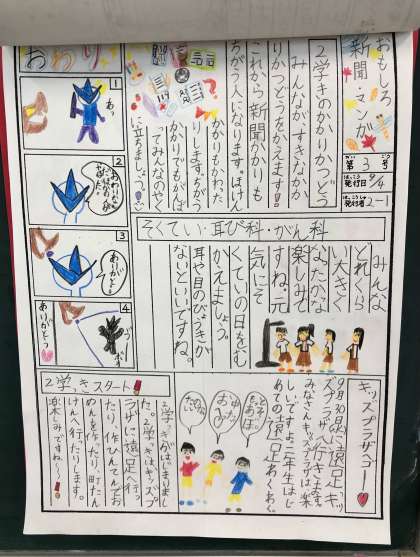 おもしろ
新聞・マンガ
第3号
発行日 9/4
発行者 2-1
2学きのかかりかつどう
みんながすきなかか
りかつどうをかえます!!
これから新聞かかりも
ちがう人になります。ほけん
がかりもかわった
りします。ちがう
かかりでもがんば
ってみんなのやく
に立ちましょう。
おわり
1
あっ
2
3
ありがとう
4
ありがとうっ
そくてい・耳び科・がん科
みんな
どれくら
い大きく
なったかな
楽しみで
すね。元
気にそ
くていの日をむ
かえましょう。
耳や目のびょうきが
ないといいですね。
キッズプラザへゴー
9月30日に遠足でキッ
ズプラザへ行きます。
みなさんキッズプラザは楽
しいですよ。二年生はじ
めての遠足わくわく。
2学きスタート
2学きがはじまりまし
た。2学きはキッズプ
ラザに遠足へ行っ
たり、作ひんてんでお
めんを作ったり、町たん
けんへ行ったりします。
楽しみですね〜